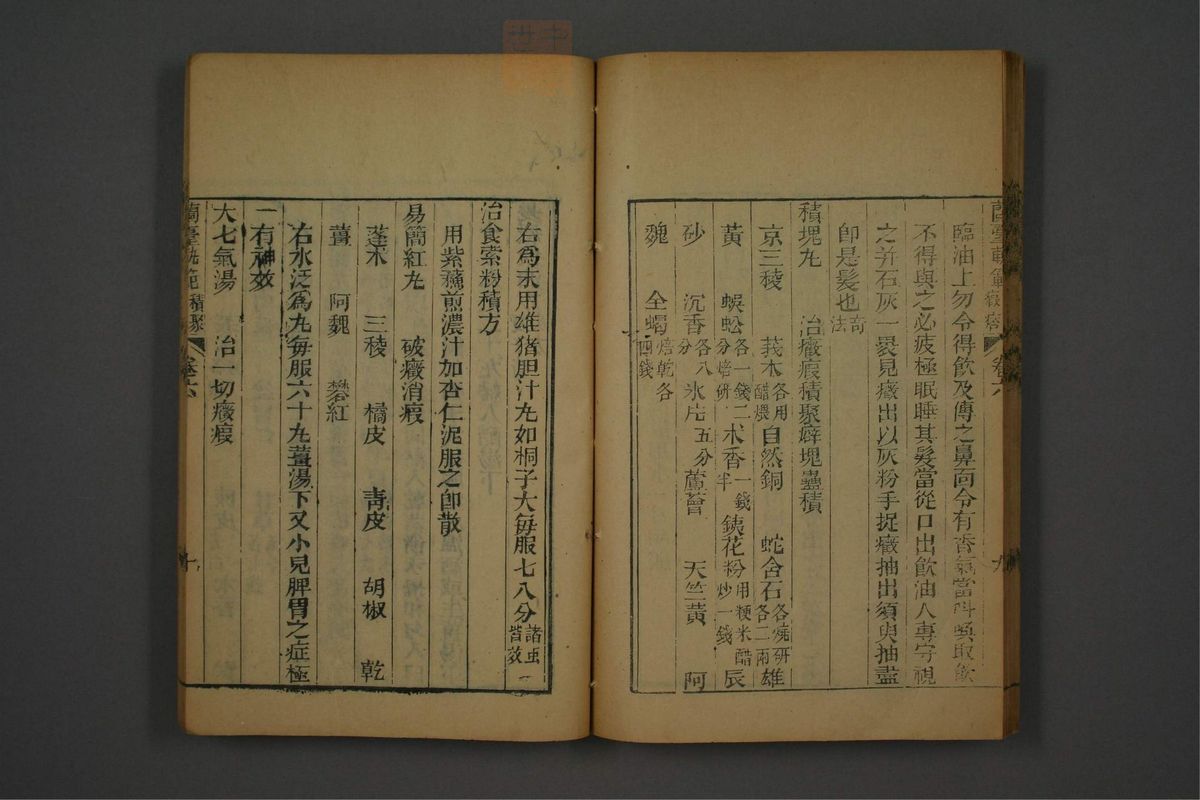 蘭臺軌範 癥瘕 卷六 九
臨油上勿令得飲及傳之鼻面令有香氣當叫喚取飲
不得與之必疲極眠睡其髮當從口出飲油人專守視
之并石灰一裹見癥出以灰粉手捉癥抽出須臾抽盡
卽是髮也奇法
積塊丸 治癥瘕積聚癖塊蠱積
京三稜 莪朮各用醋煨 自然銅 蛇含石各燒研各二兩 雄
黃 蜈蚣各一錢二分焙研 木香一錢半 銕花粉用粳米醋炒一錢 辰
砂 沉香各八分 氷片五分 蘆薈 天竺黃 阿
魏 全蝎焙乾各四錢
右爲末用雄猪胆汁丸如桐子大每服七八分諸虫皆效
治食索粉積方
用紫蘓煎濃汁加杏仁泥服之卽散
易簡紅丸 破癥消瘕
蓬朮 三稜 橘皮 靑皮 胡椒 乾
薑 阿魏 礬紅
右水泛爲丸每服六十丸薑湯下又小兒脾胃之症極
有神效
大七氣湯 治一切癥瘕
蘭臺軌範 積聚 卷六 十